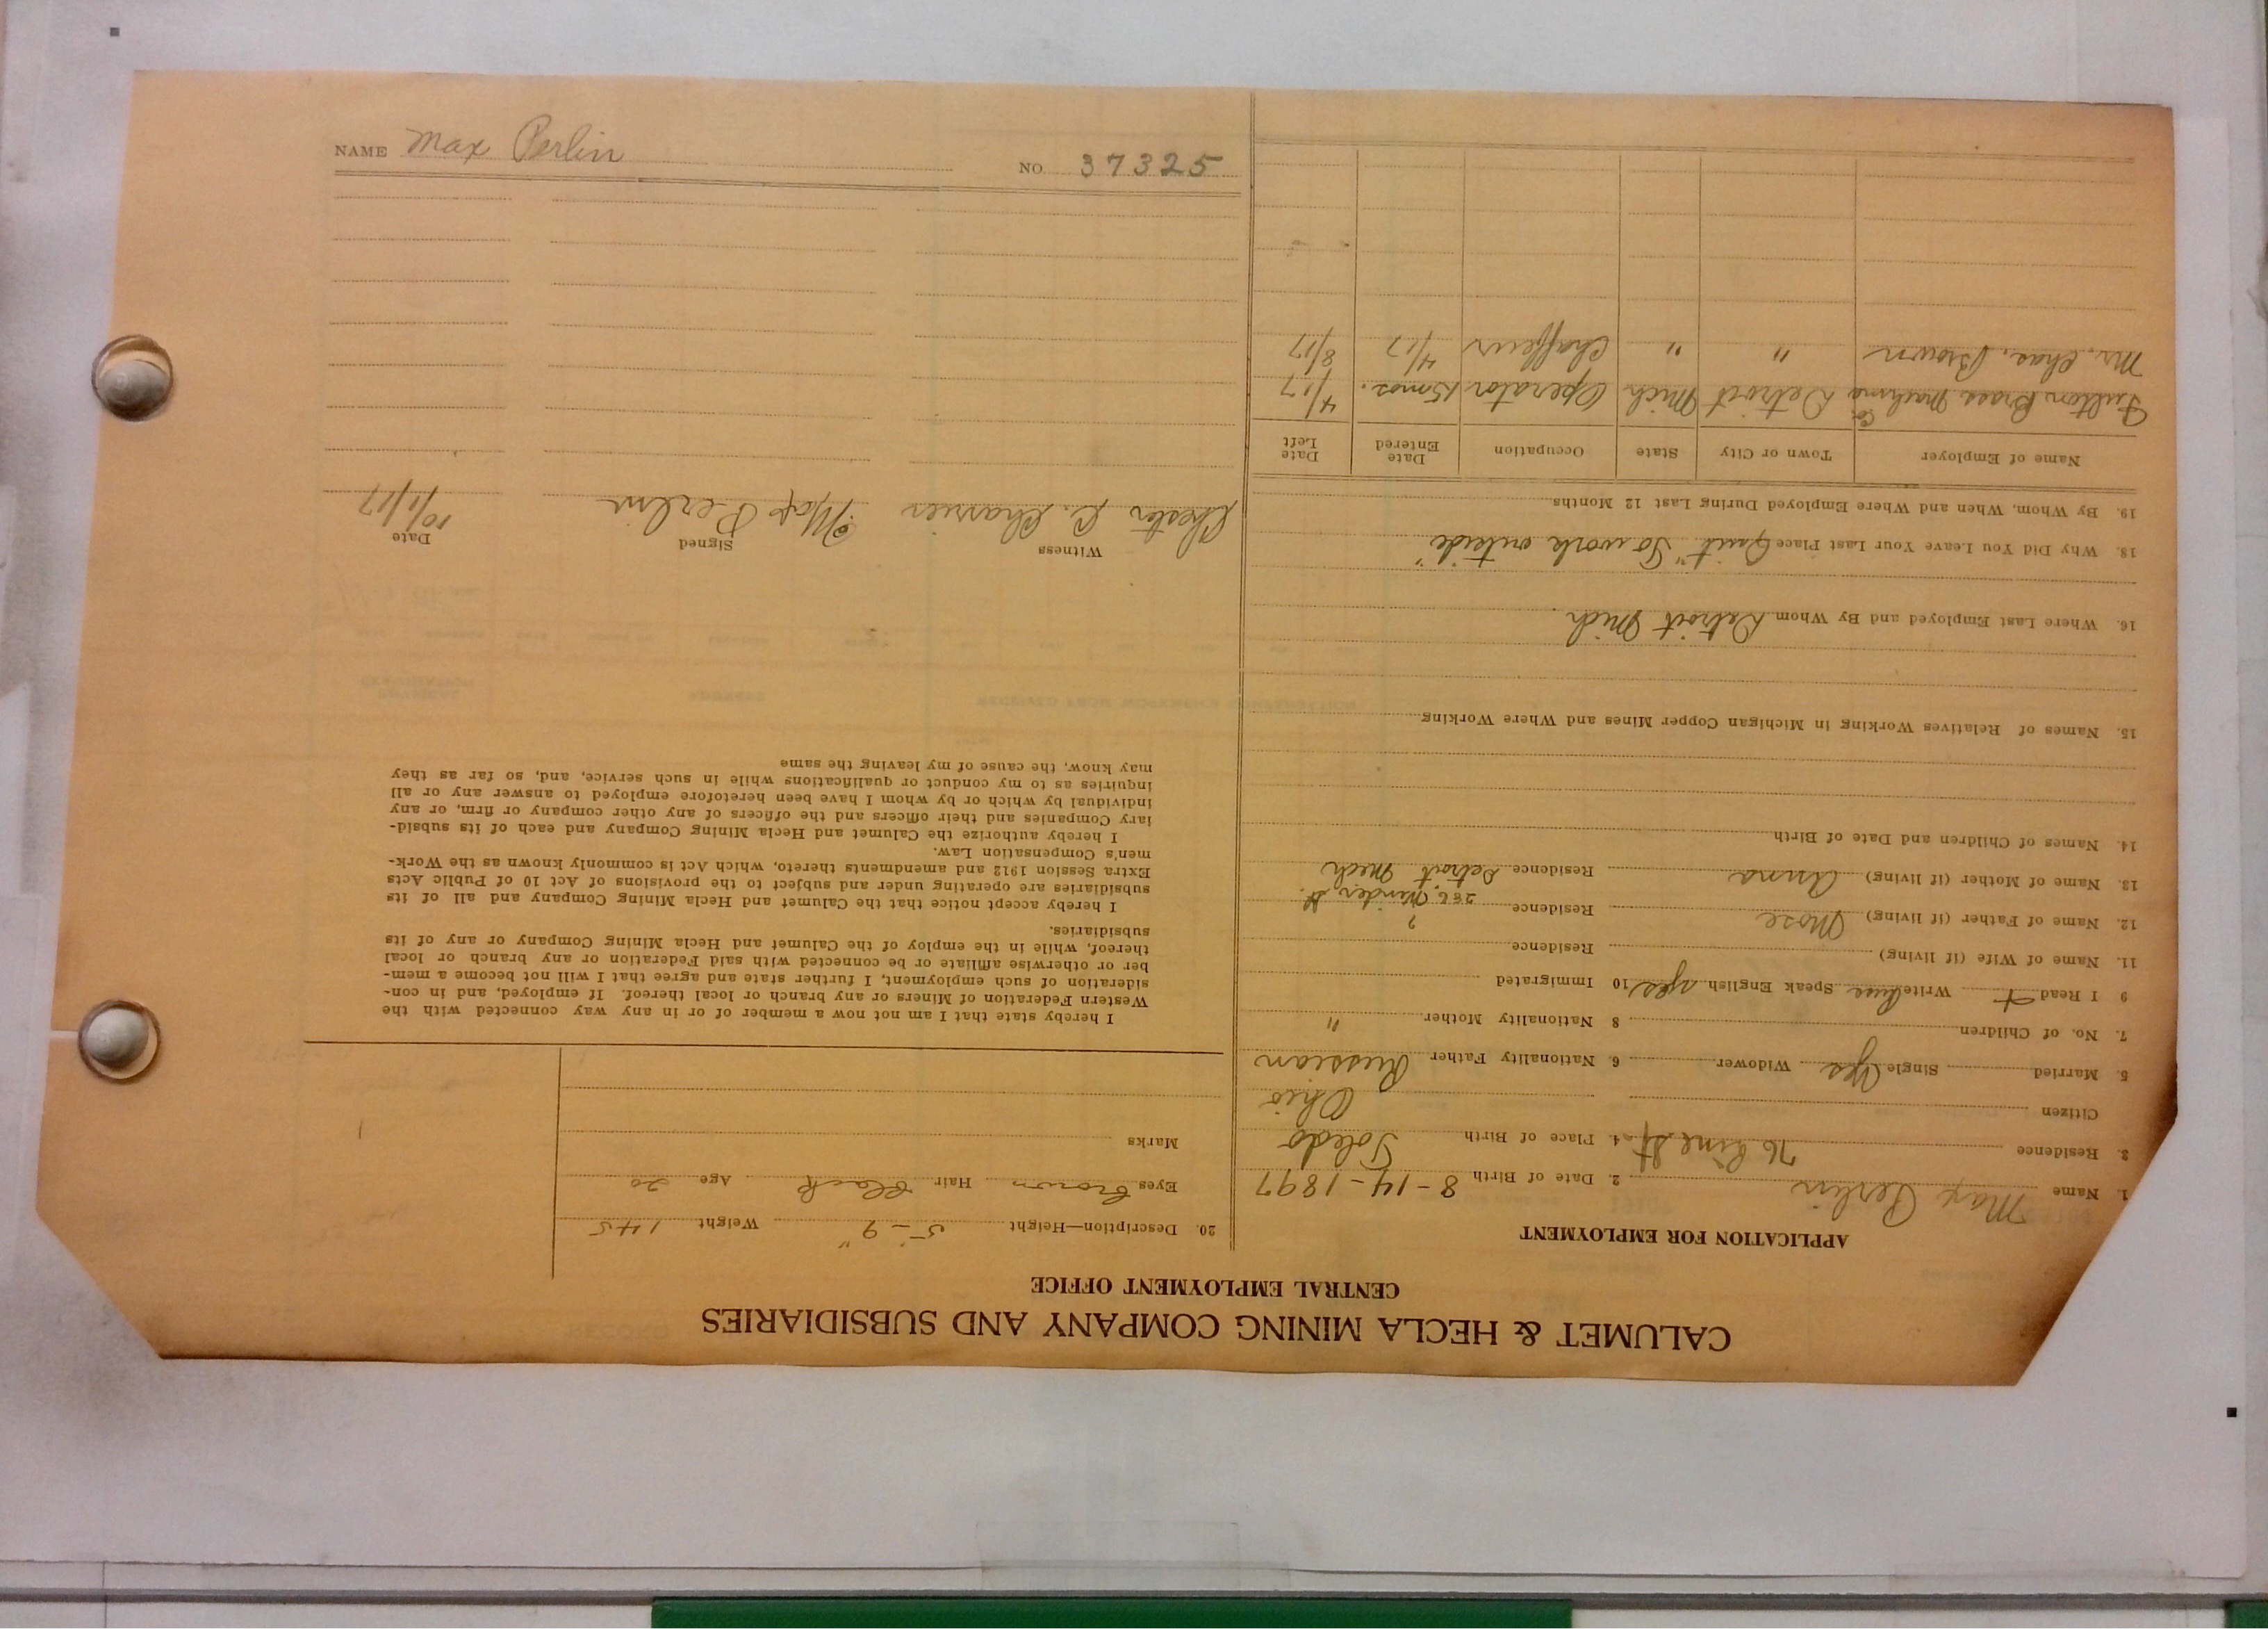 CALUMET & HECLA MINING COMPANY AND SUBSIDIARIES
CENTRAL EMPLOYMENT OFFICE
APPLICATION FOR EMPLOYMENT
1. Name Max Perlin 2. Date of Birth 8-14-1897
3. Residence 76 Pine St. 4. Place of Birth Toledo
Citizen Ohio
5. Married Single Yes Widower 6. Nationality Father Russian
7. No. of Children 8 Nationality Mother "
9 I Read + Write Speak English yes 10 Immigrated
11. Name of Wife (if living) Residence
12. Name of Father (if living) Mose Residence ?
13. Name of Mother (if living) Anna Residence 286 St. Detroit Mich
14. Names of Children and Date of Birth
15. Names of Relatives Working in Michigan Copper Mines and Where Working
16. Where Last Employed and By Whom Detroit Mich
18. Why Did You Leave Your Last Place Quit "To work outside"
19. By Whom, When and Where Employed During Last 12 Months
Name of Employer Town or City State Occupation Date Entered Date Left
Fulton Brass Machine Co Detroit Mich Operator 15 mos. 4/17
Mr. Chas. Brown " " Chaffeur 4/17 8/17
20. Description—Height 5-9" Weight 145
Eyes brown Hair black Age 20
Marks
I hereby state that I am not now a member of or in any way connected with the
Western Federation of Miners or any branch or local thereof. If employed, and in con-
sideration of such employment, I further state and agree that I will not become a mem-
ber or otherwise affiliate or be connected with said Federation or any branch or local
thereof, while in the employ of the Calumet and Hecla Mining Company or any of its
subsidiaries.
I hereby accept notice that the Calumet and Hecla Mining Company and all of its
subsidiaries are operating under and subject to the provisions of Act 10 of Public Acts
Extra Session 1912 and amendments thereto, which Act is commonly known as the Work-
men's Compensation Law.
I hereby authorize the Calumet and Hecla Mining Company and each of its subsid-
iary Companies and their officers and the officers of any other company or firm, or any
individual by which or by whom I have been heretofore employed to answer any or all
inquiries as to my conduct or qualifications while in such service, and, so far as they
may know, the cause of my leaving the same
Witness Signed Date
Chester Max Perlin 10/1/17
NAME Max Perlin NO. 37325